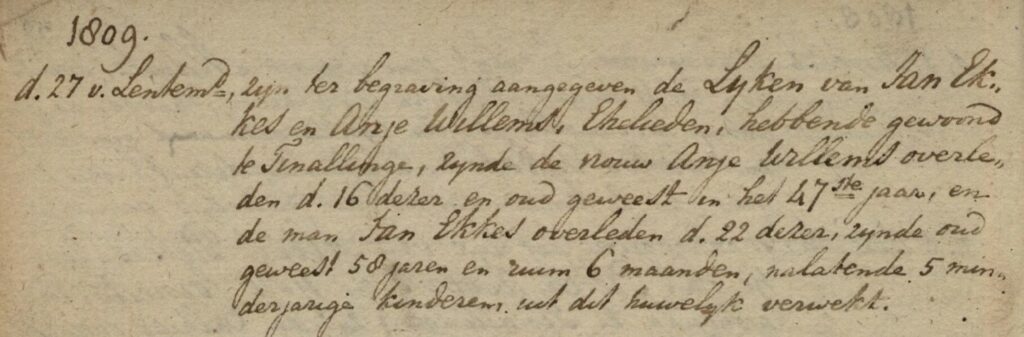 1809.
d. 27 v. Lentemd, zyn ter begraving aangegeven de Lyken van Jan Ek„
kes en Anje Willems, Ehelieden, hebbende gewoond
te Tinallinge, zynde de vrouw Anje Willems overle„
den d. 16 dezer en oud geweest in het 47ste jaar, en
de man Jan Ekkes overleden d. 22 dezer, zynde oud
geweest 58 jaren en ruim 6 maanden, nalatende 5 min„
derjarige kinderen, uit dit huwelyk verwekt.